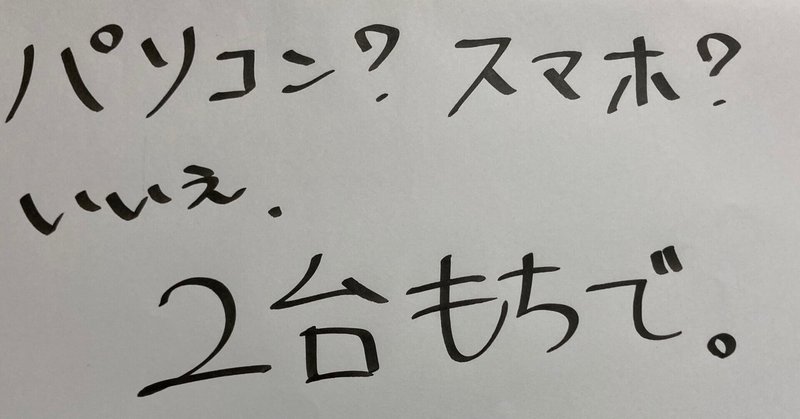 パソコン? スマホ?
いいえ.
2台もちで。